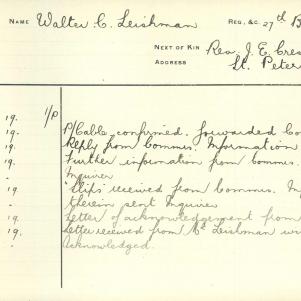 NAME Walter C. Leishman REG. &C. 27th B
NEXT OF KIN Rev. J. E. Cres
ADDRESS St. Peter
19. 1/P P/Cable confirmed. Forwarded Co
19. Reply from Commis. Information
19. Further information from Commis.
Inquirer
"Slips" received from Commis.
therein sent Inquirer
Letter of acknowledgement from
19. Letter received from Mr Leishman
Acknowledged.